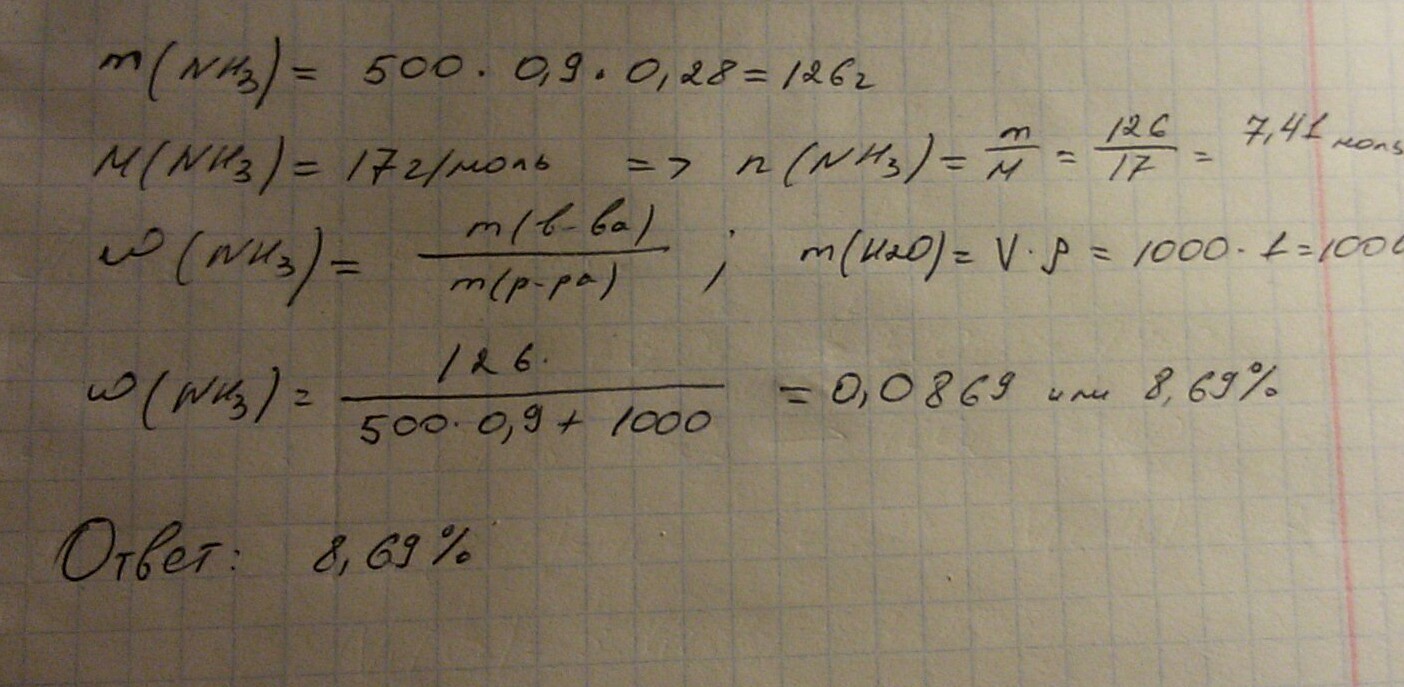 m(NH3) = 500 · 0,9 · 0,28 = 126г
M(NH3) = 17г/моль => n(NH3) = m/M = 126/17 = 7,41 моль
ω(NH3) = m(в-ва)/m(р-ра) ; m(H2O) = V · ρ = 1000 · 1 = 100
ω(NH3) = 126/500 · 0,9 + 1000 = 0,0869 или 8,69%
Ответ: 8,69%